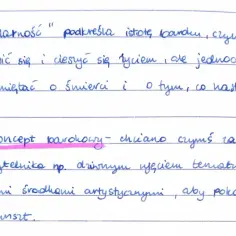 ność" podkreśla istotę baroku, czy
ić się i cieszyć się życiem, ale jednoc
miętać o śmierci i o tym, co nas
oncept barokowy - chciano czymś za
ytelnika np. dziwnym ujęciem tematu
mi środkami artystycznymi, aby poka
unszt.